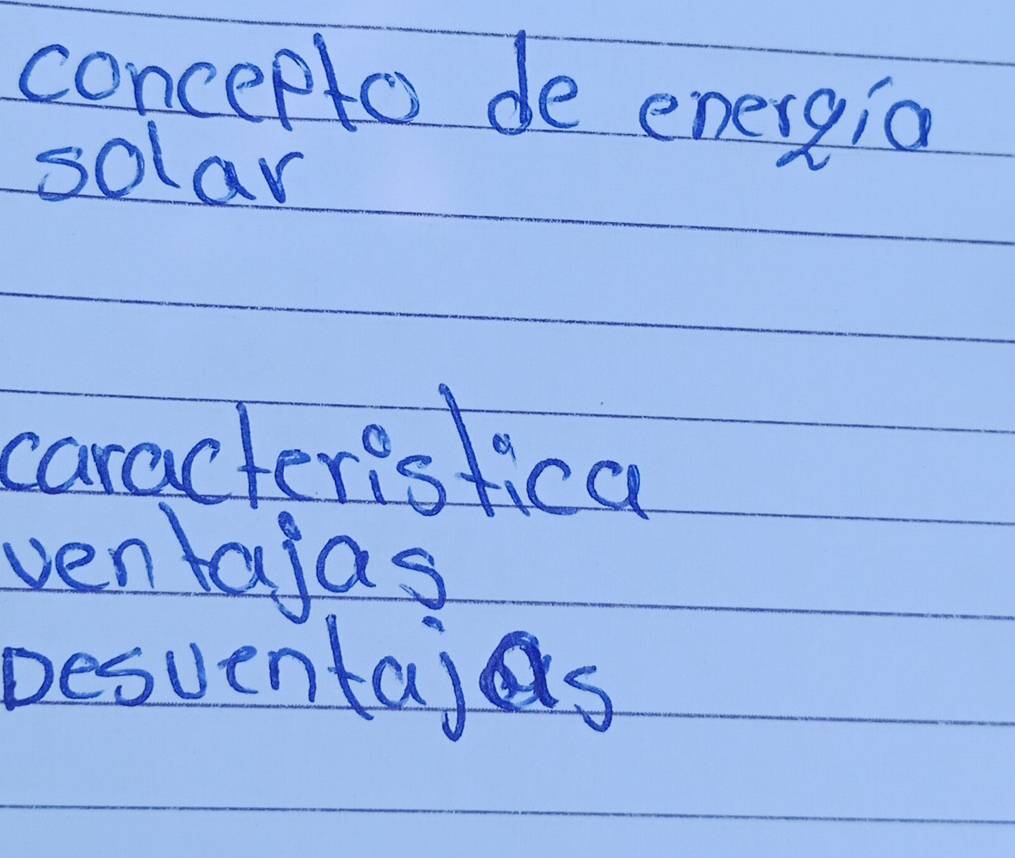 concepto de energía
solar
caracteristica
ventajas
Desventajas